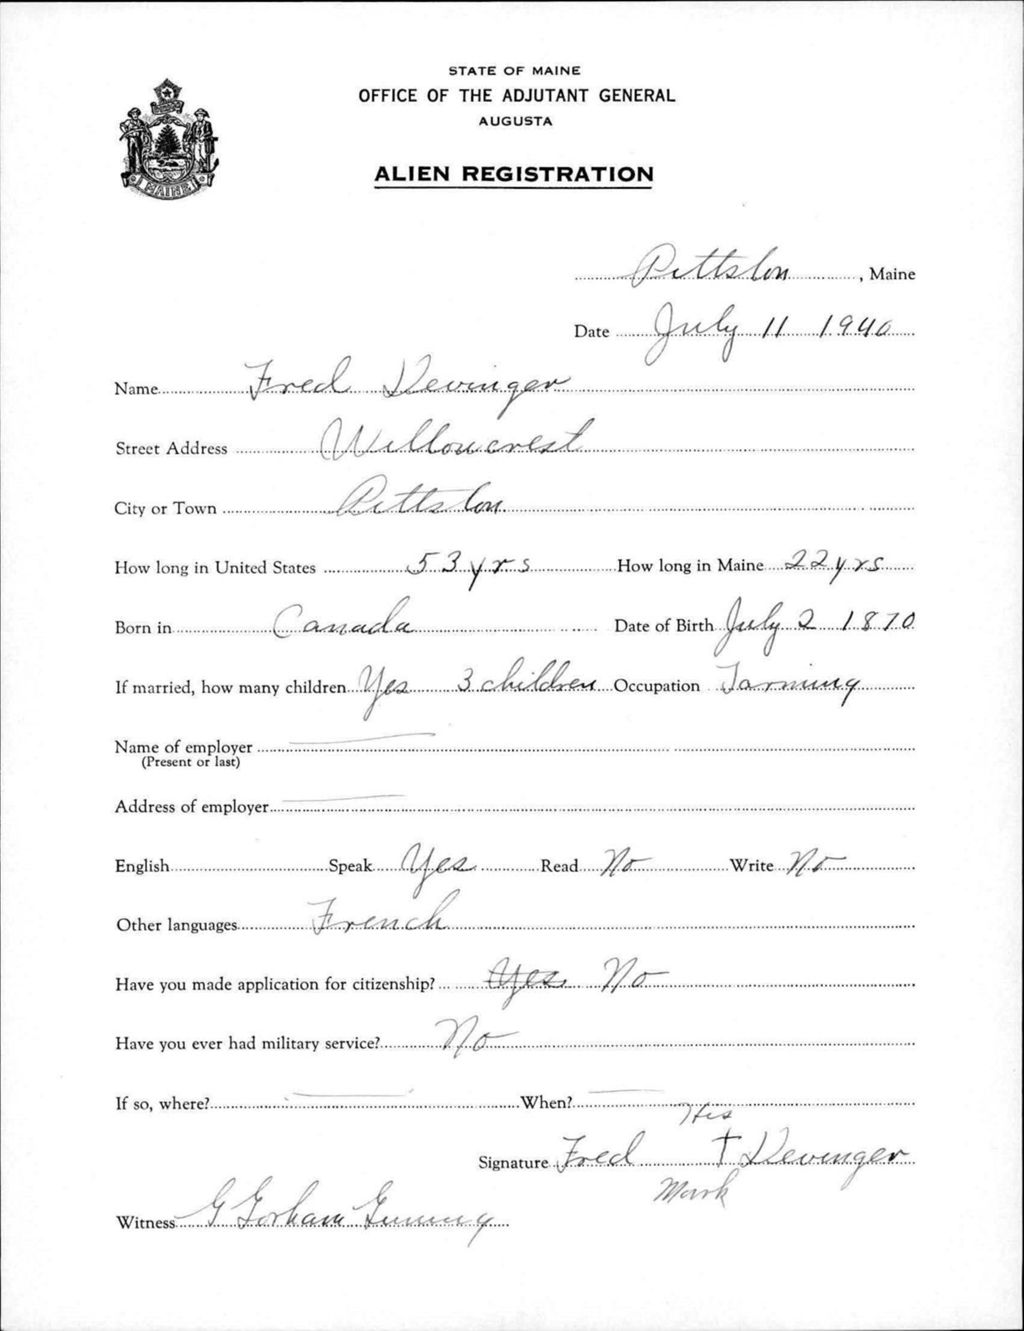 STATE OF MAINE
OFFICE OF THE ADJUTANT GENERAL
AUGUSTA
ALIEN REGISTRATION
MAINE
Pittston, Maine
Date July 11 1940
Name Fred Devinger
Street Address Willowcrest
City or Town Pittston
How long in United States 53 yrs How long in Maine 22 yrs
Born in Canada Date of Birth July 2 1870
If married, how many children Yes 3 children Occupation Farming
Name of employer
(Present or last)
Address of employer
English Speak Yes Read No Write No
Other languages French
Have you made application for citizenship? Yes No
Have you ever had military service? No
If so, where? When?
His
Signature Fred † Devinger
Mark
Witness G Gorham